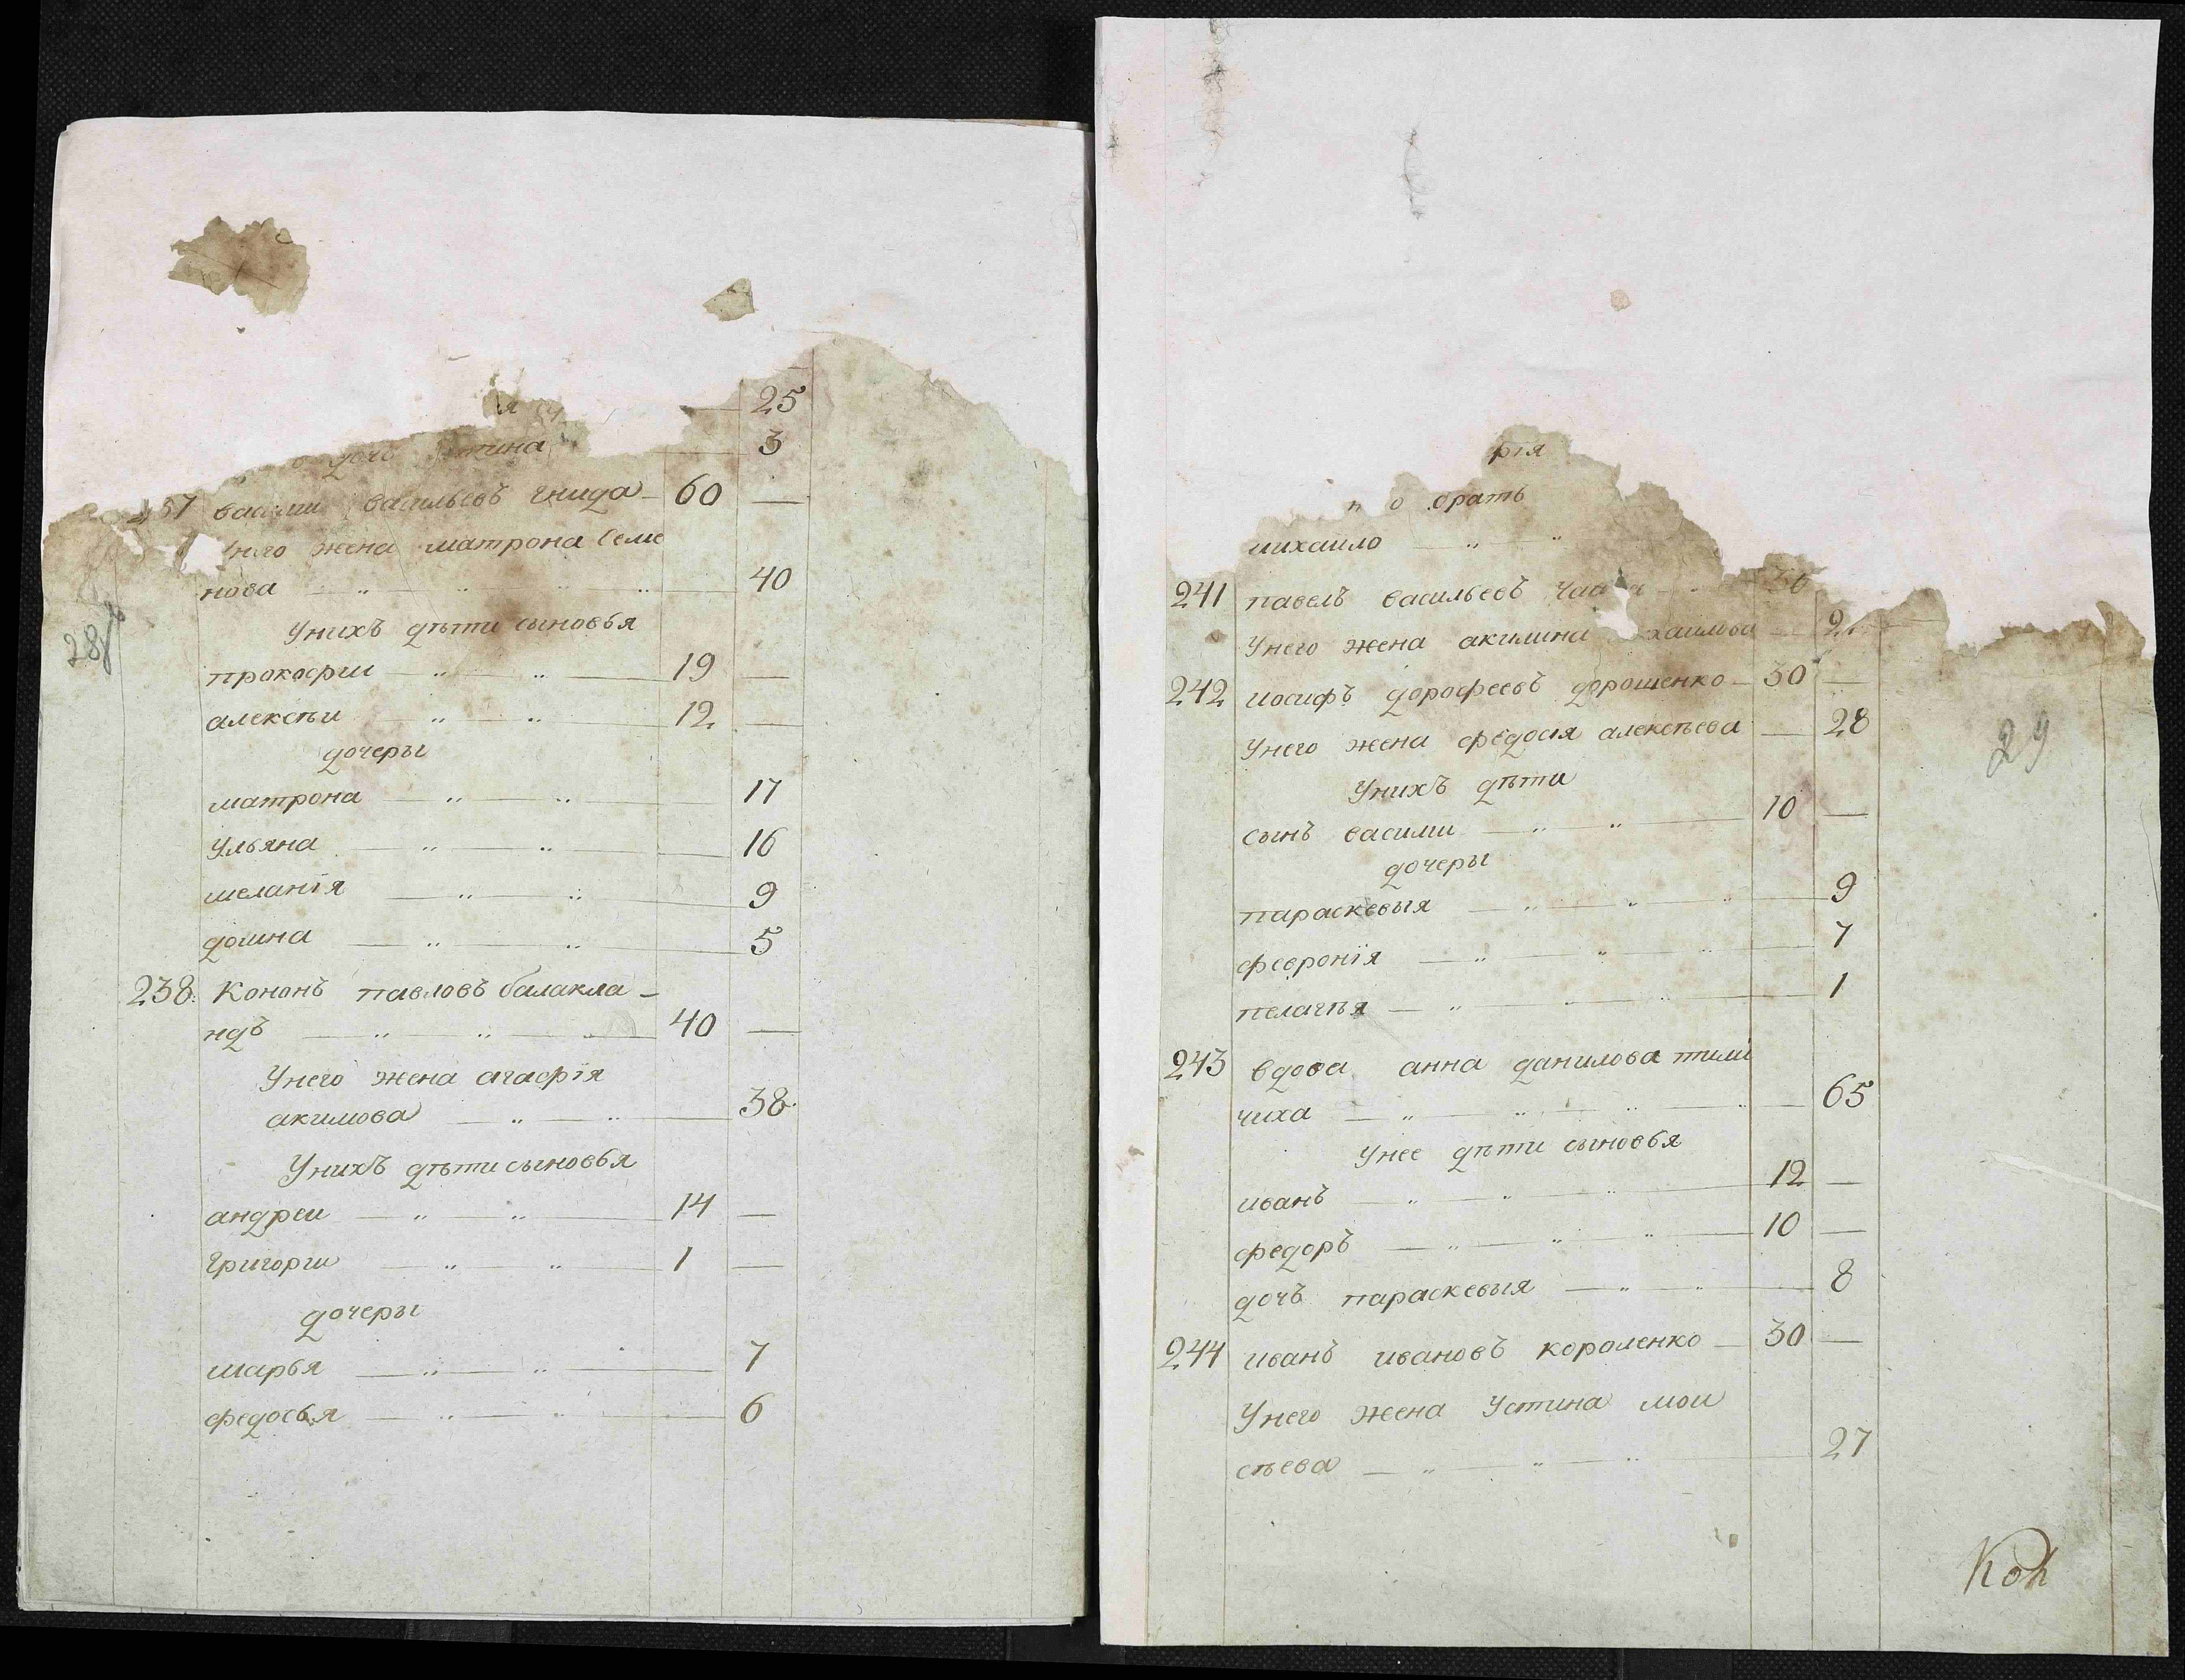 я 25
дочь 3
237 василии васильевъ гнида 60 —
жена матрона Семе
нова 40
Унихъ дѣти сыновья
прокофии 19 —
алексѣи 12 —
дочеры
матрона 17
Ульяна 16
меланія 9
домна 5
238. Кононъ павловъ балакла -
ндъ 40 —
Унего жена агафія
акимова 38
Унихъ дѣти сыновья
андреи 14 —
Григории 1 —
дочеры
марья 7
федосья 6
28
фія
братъ
михаило
241 павелъ васильевъ
Унего жена акилина хаилова
242 иосифъ дорофеевъ дорошенко 30 —
Унего жена федосия алексѣева — 28
Унихъ дѣти
сынъ василии 10 —
дочеры
параскевыя 9
февронія 7
пелагѣя 1
243 вдова анна данилова тими
чиха 65
Унее дѣти сыновья
иванъ 12 —
федоръ 10 —
дочъ параскевыя 8
244 иванъ ивановъ короленко 30 —
Унего жена Устина мои
сѣева 27
29